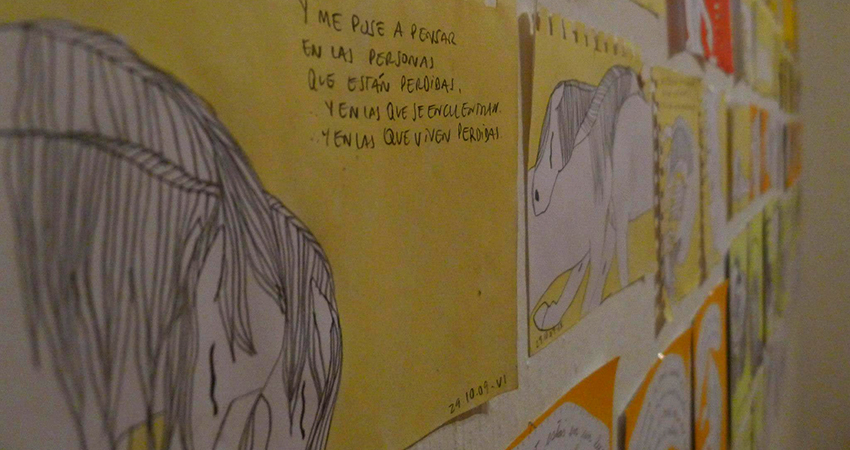 Y ME PUSE A PENSAR
EN LAS PERSONAS
QUE ESTÁN PERDIDAS,
Y EN LAS QUE SE ENCUENTRAN.
Y EN LAS QUE VIVEN PERDIDAS.
29.10.09-VI